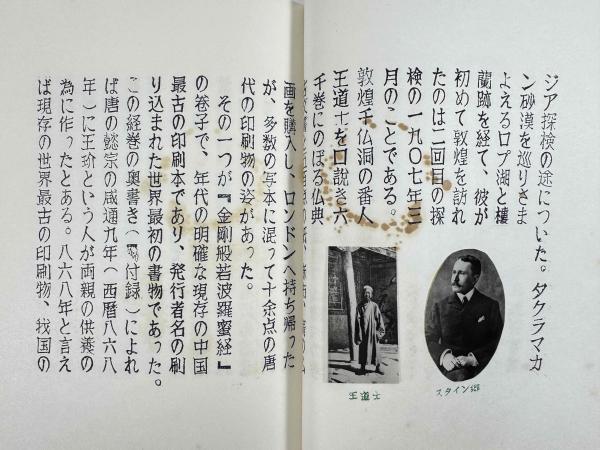 ジア探検の途についた。タクラマカ
ン砂漠を巡りさま
よえるロプ湖と楼
蘭跡を経て、彼が
初めて敦煌を訪れ
たのは二回目の探
検の一九〇七年三
月のことである。
敦煌千仏洞の番人
王道士を口説き六
千巻にのぼる仏典
スタイン卿
王道士
画を購入し、ロンドンへ持ち帰った
が、多数の写本に混って十余点の唐
代の印刷物の姿があった。
その一つが『金剛般若波羅蜜経』
の巻子で、年代の明確な現存の中国
最古の印刷本であり、発行者名の刷
り込まれた世界最初の書物であった。
この経巻の奥書き(付録)によれ
ば唐の懿宗の咸通九年(西暦八六八
年)に王玠という人が両親の供養の
為に作ったとある。八六八年と言え
ば現存の世界最古の印刷物、我国の